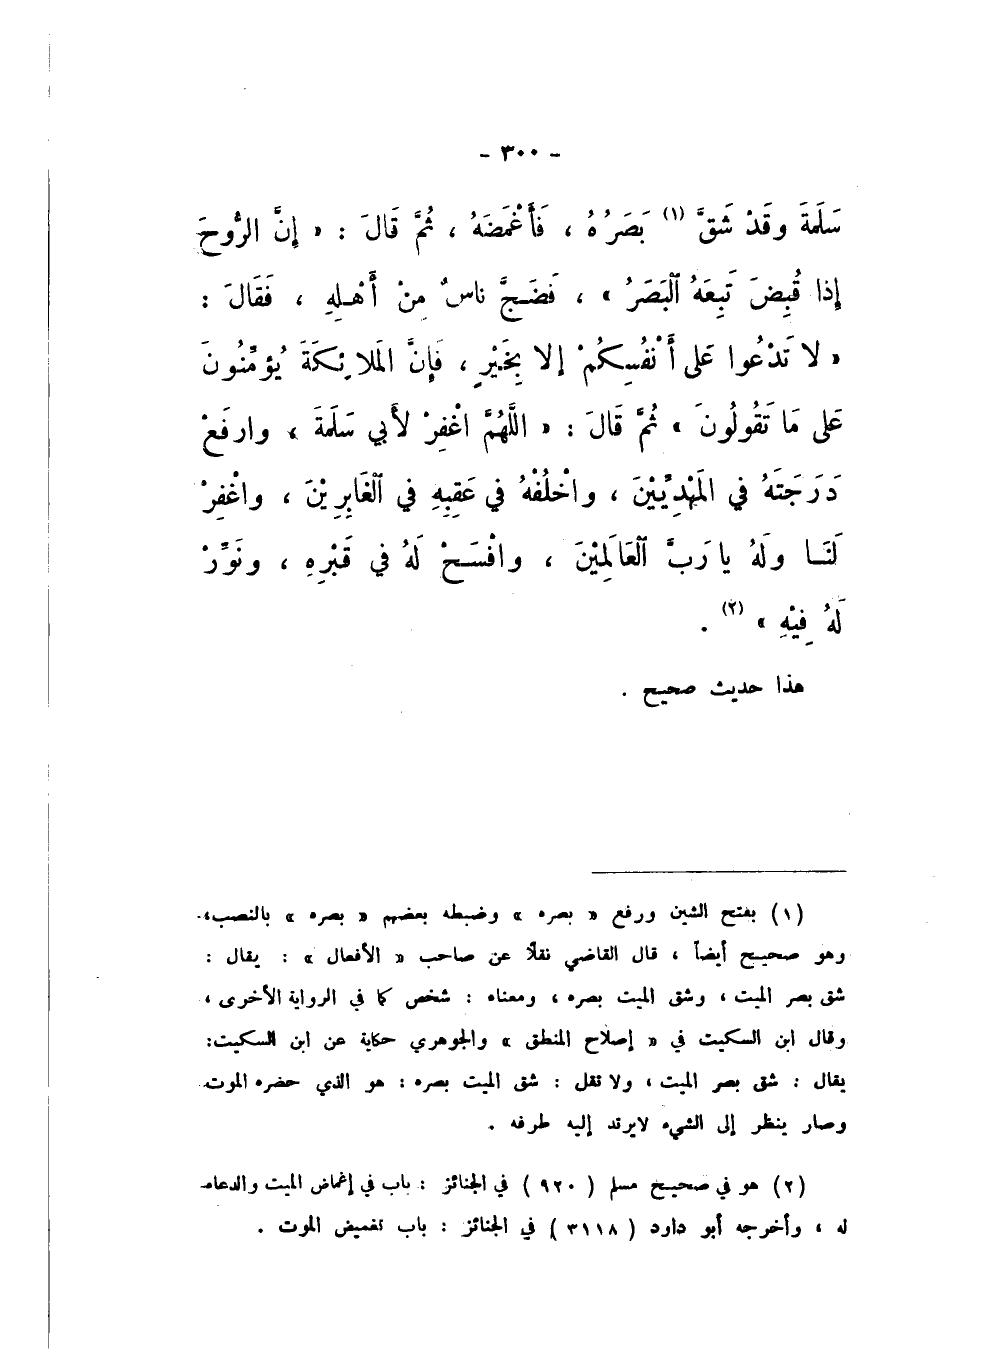 - ٣٠٠ -
سَلَمَةَ وقَدْ شَقَّ (١) بَصَرُهُ ، فَأَغْمَضَهُ ، ثُمَّ قَالَ : « إِنَّ الرُّوحَ
إذا قُبِضَ تَبِعَهُ ٱلبَصَرُ » ، فَضَجَّ ناسٌ مِنْ أَهْلِهِ ، فَقَالَ :
« لا تَدْعُوا عَلى أَنْفُسِكُمْ إلا بِخَيْرٍ ، فَإِنَّ المَلائِكَةَ يُؤمِّنُونَ
عَلى مَا تَقُولُونَ » ثُمَّ قَالَ : « اللَّهُمَّ اغْفِرْ لأَبي سَلَمةَ ، وارفَعْ
دَرَجَتَهُ في المَهْدِيِّيْنَ ، واخْلُفْهُ في عَقِبِهِ في ٱلغَابِرِيْنَ ، واغْفِرْ
لَنَا ولَهُ يا رَبَّ ٱلعَالَمِيْنَ ، وافْسَحْ لَهُ في قَبْرِهِ ، ونَوِّرْ
لَهُ فِيْهِ » (٢) .
هذا حديث صحيح .
(١) بفتح الشين ورفع « بصره » وضبطه بعضهم « بصره » بالنصب،
وهو صحيح أيضاً ، قال القاضي نقلاً عن صاحب « الأفعال » : يقال :
شق بصر الميت ، وشق الميت بصره ، ومعناه : شخص كما في الرواية الأخرى ،
وقال ابن السكيت في « إصلاح المنطق » والجوهري حكاية عن ابن السكيت:
يقال : شق بصر الميت ، ولا تقل : شق الميت بصره : هو الذي حضره الموت
وصار ينظر إلى الشيء لايرتد إليه طرفه .
(٢) هو في صحيح مسلم ( ٩٢٠ ) في الجنائز : باب في إغماض الميت والدعاء
له ، وأخرجه أبو داود ( ٣١١٨ ) في الجنائز : باب تغميض الموت .